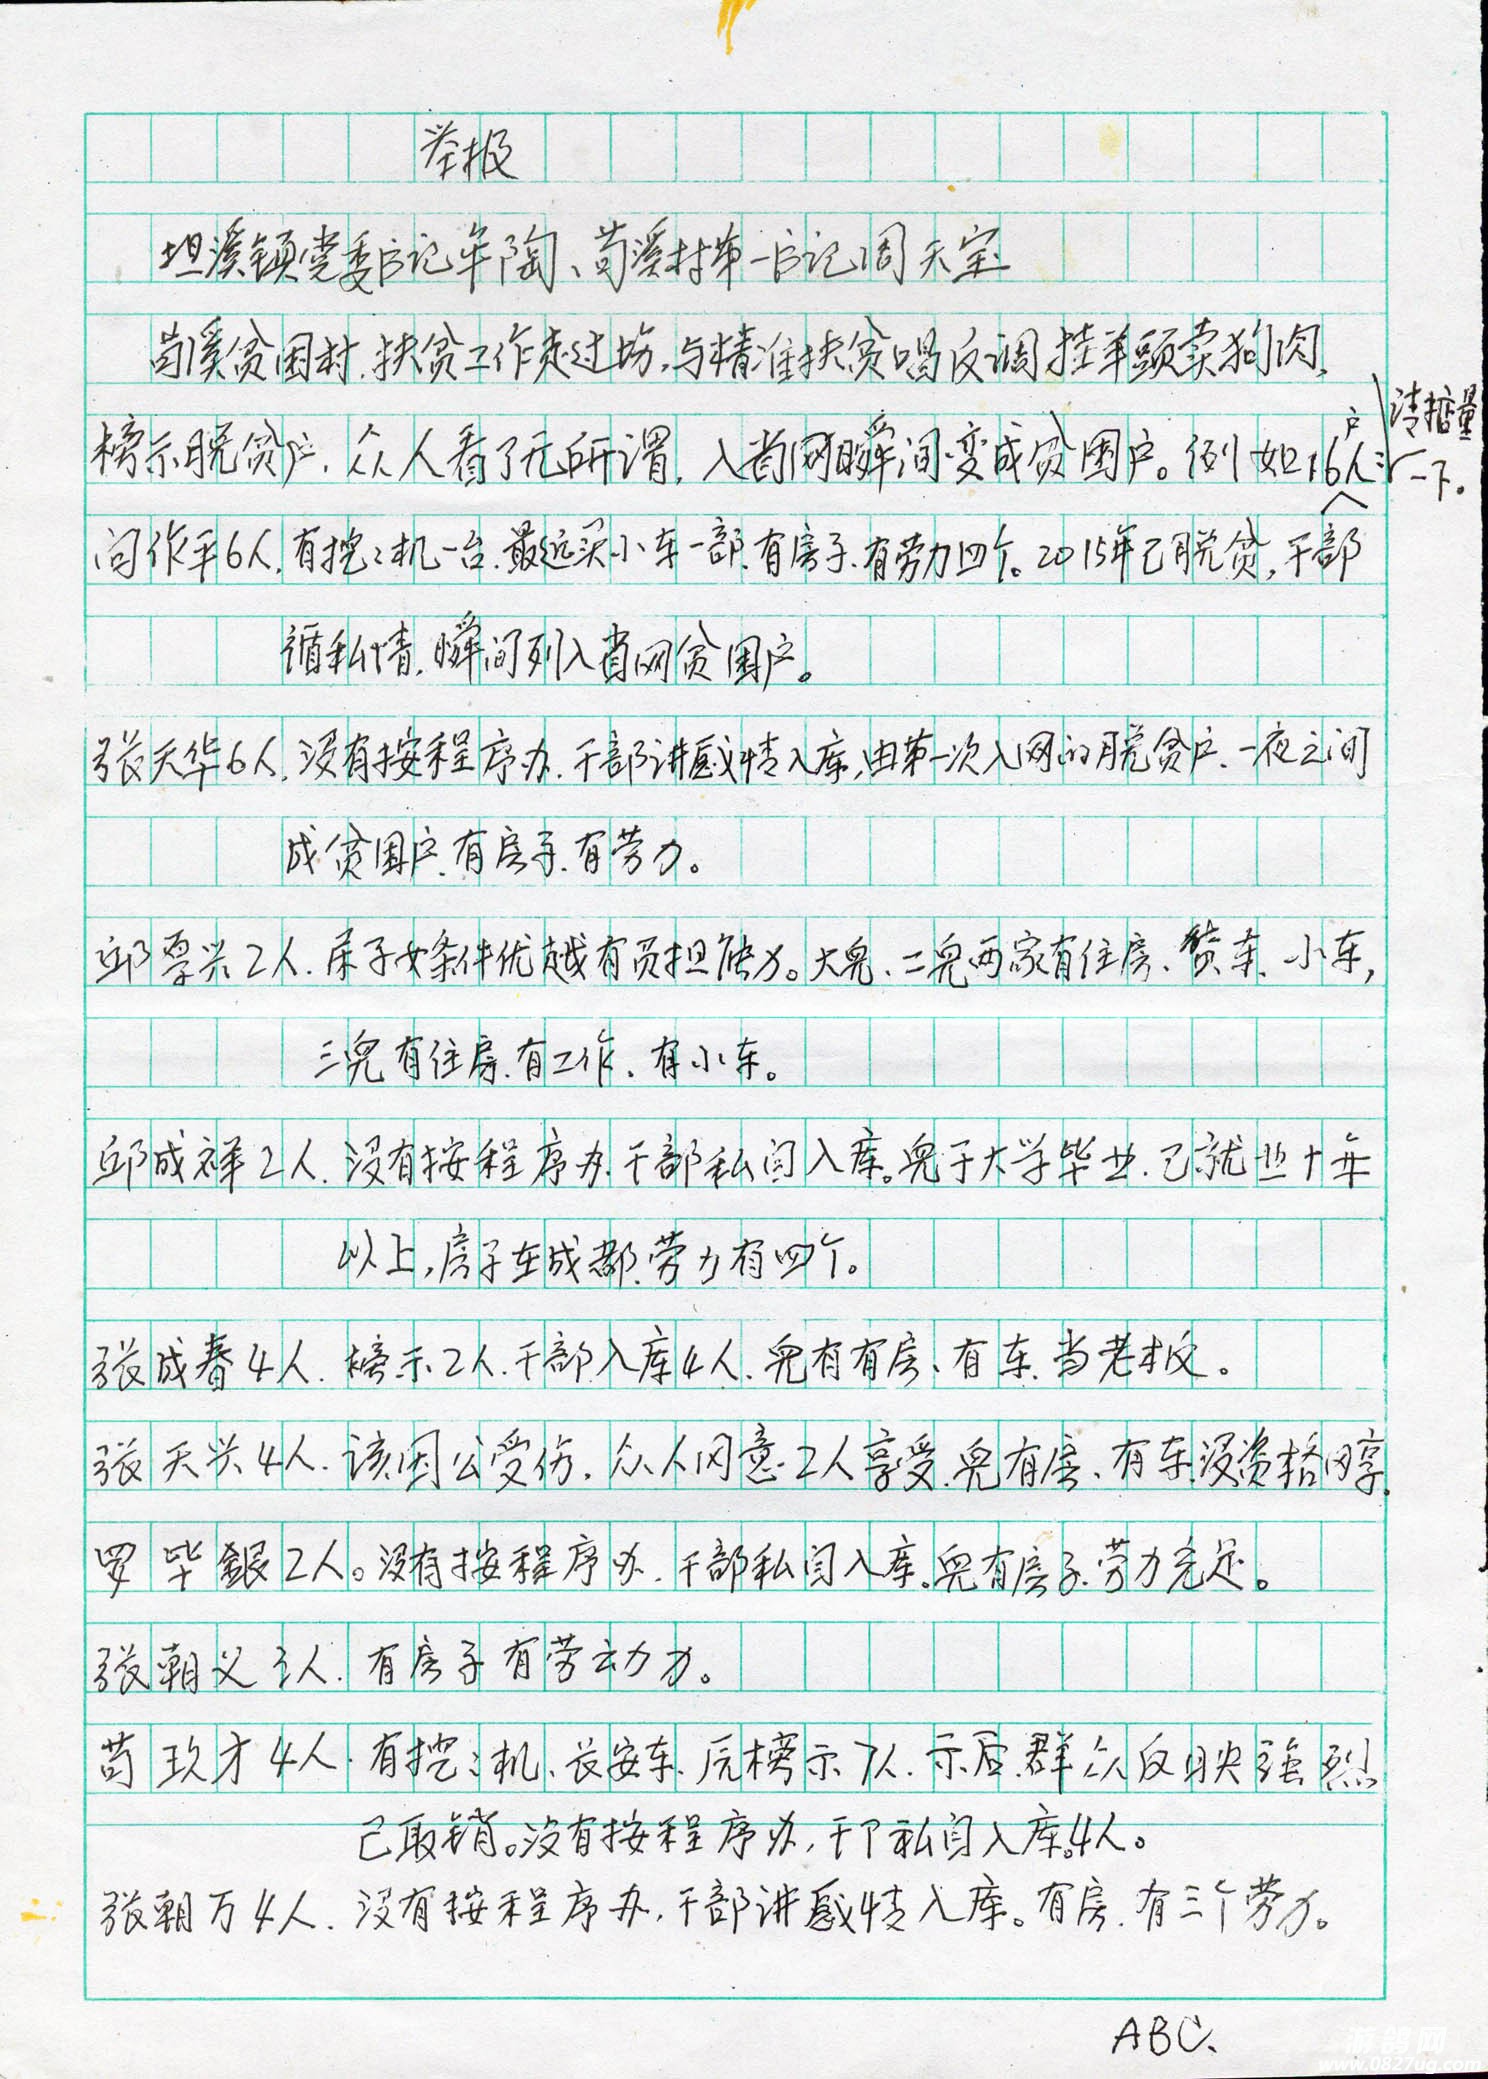 举报
坦溪镇党委书记牟陶、苟溪村第一书记周天宝
苟溪贫困村.扶贫工作走过场,与精准扶贫唱反调挂羊头卖狗肉,
榜示脱贫户.众人看了无所谓,入省网瞬间变成贫困户。例如16户人:
请掂量
一下。
闫作平6人.有挖挖机一台.最近买小车一部.有房子.有劳力四个。2015年已脱贫,干部
循私情.瞬间列入省网贫困户。
张天华6人.没有按程序办.干部讲感情入库,由第一次入网的脱贫户.一夜之间
成贫困户.有房子.有劳力。
邱学兴2人.儿子女条件优越有负担能力。大儿、二儿两家有住房、货车、小车,
三儿有住房.有工作.有小车。
邱成祥2人.没有按程序办.干部私自入库。儿子大学毕业.已就业十年
以上,房子在成都.劳力有四个。
张成春4人.榜示2人.干部入库4人.儿有有房、有车.当老板。
张天兴4人.该因公受伤.众人同意2人享受.儿有房、有车.没资格同享.
罗毕银2人。没有按程序办.干部私自入库.儿有房子.劳力充足。
张朝义3人.有房子有劳动力。
苟玖才4人.有挖挖机、长安车.原榜示7人.示后群众反映强烈
已取销。没有按程序办,干部私自入库.4人。
张朝万4人.没有按程序办,干部讲感情入库。有房.有三个劳力。
ABC.
游鸽网
www.0827ug.com